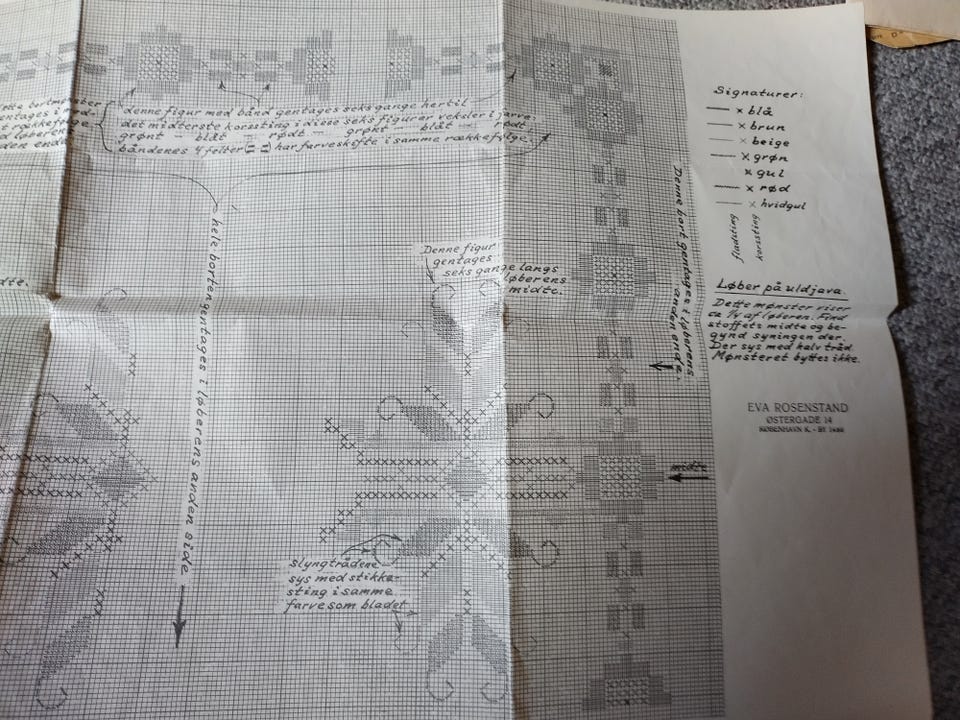 denne figur med bånd gentages seks gange hertil
det midterste korssting i disse seks figurer veksler i farve:
grønt — blåt — rødt — grønt — blåt — rødt.
båndenes 4 felter har farveskifte i samme rækkefølge.
hele borten gentages i løberens anden side
Denne figur
gentages
seks gange langs
løberens
midte.
Denne bort gentages i løberens
anden ende.
midte
slyngtrådene
sys med stikke-
sting i samme
farve som bladet
dte.
Signaturer:
x blå
x brun
x beige
x grøn
x gul
x rød
x hvidgul
fladsting
korssting
Løber på uldjava.
Dette mønster viser
ca ¼ af løberen. Find
stoffets midte og be-
gynd syningen der.
Der sys med halv tråd
Mønsteret byttes ikke.
EVA ROSENSTAND
ØSTERGADE 14
KØBENHAVN K. - BY 1486